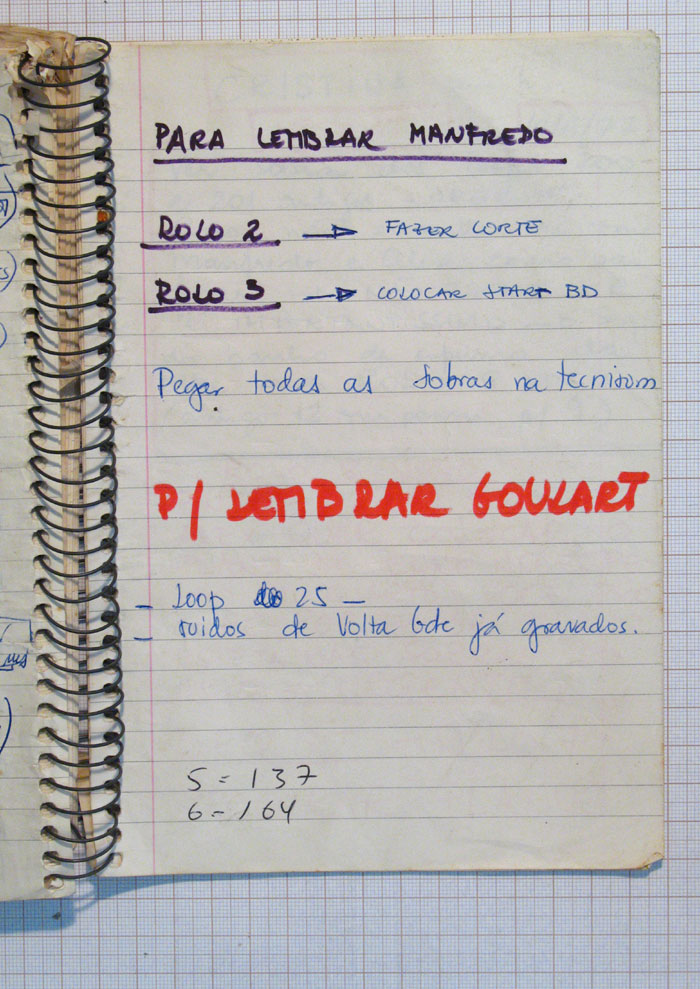 PARA LEMBRAR MANFREDO
ROLO 2 → FAZER CORTE
ROLO 3 → COLOCAR START BD
Pegar todas as sobras na tecnisom
P/ LEMBRAR GOULART
- Loop 25 -
- ruidos de Volta Gde já gravados.
5 = 137
6 - 164